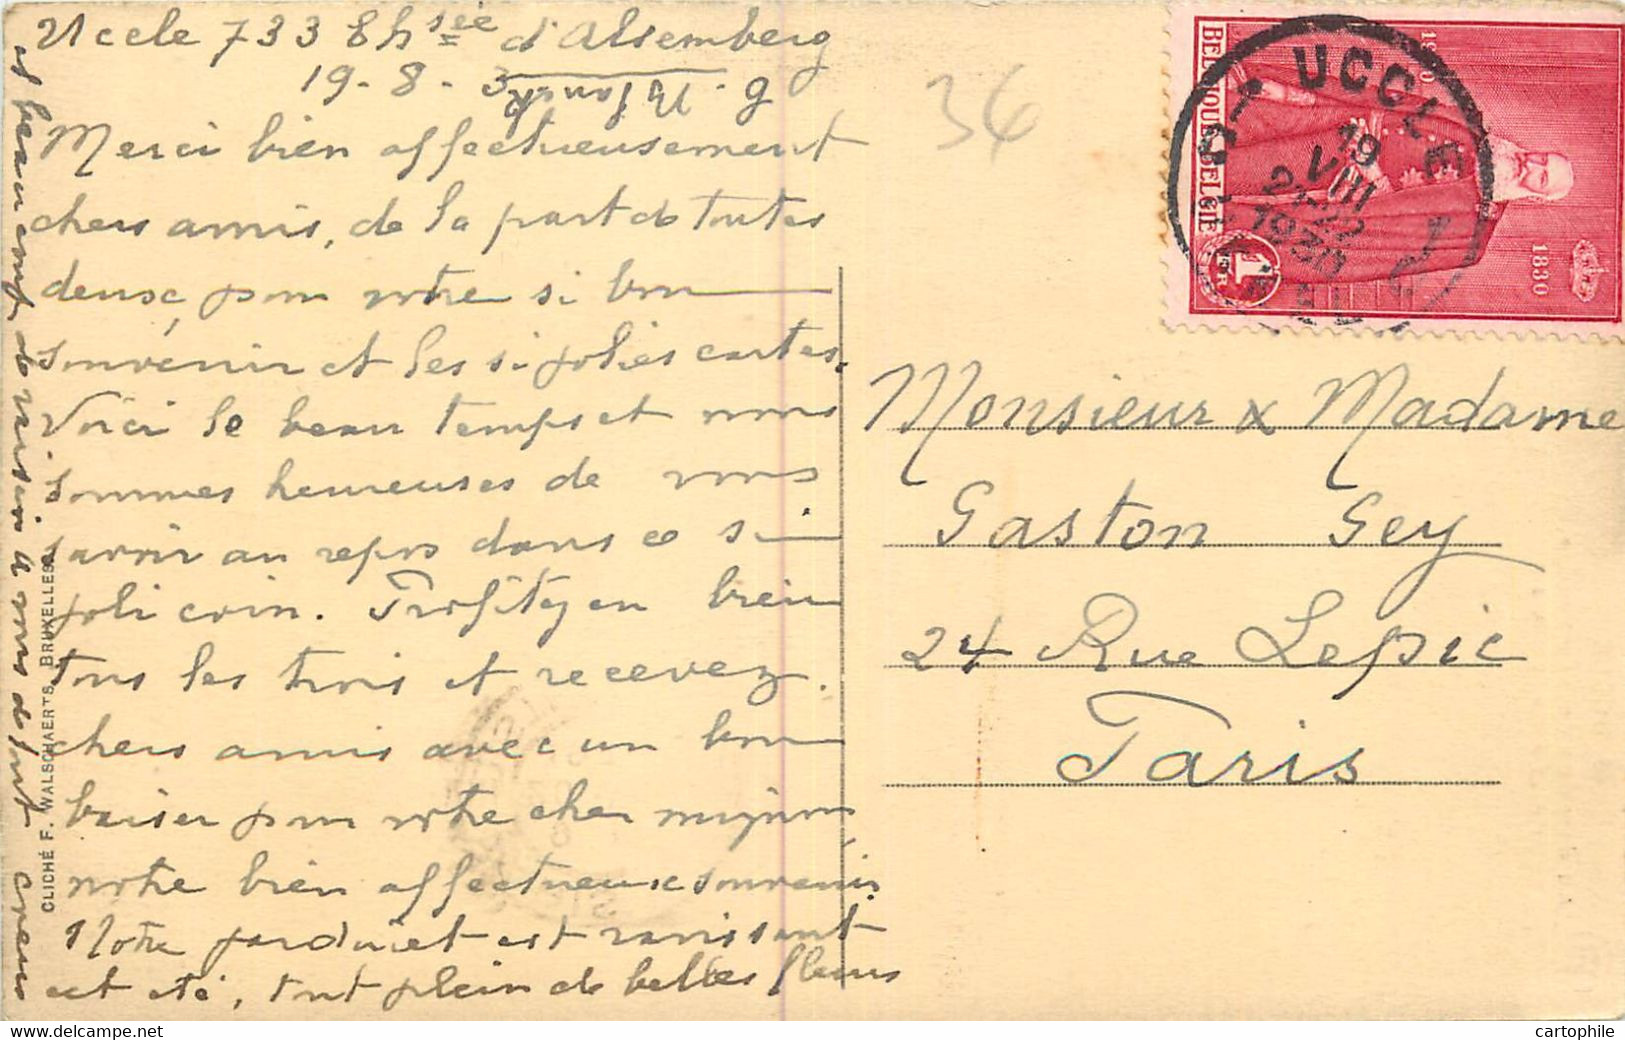 Uccle 733 Chsée d'Alsemberg
19-8-3
g. Blanck
Merci bien affectueusement
chers amis, de la part de toutes
deuse, pour votre si bon
souvenir et les si jolies cartes.
Voici le beau temps et nous
sommes heureuses de vous
savoir au repos dans ce si
joli coin. Profitez en bien
tous les trois et recevez
chers amis avec un bon
baiser pour votre cher mignon
notre bien affectueux souvenir
Notre jardinet est ravissant
cet été, tout plein de belles fleurs
et beaucoup de raisin à vous de tout cœur
CLICHÉ F. WALSCHAERTS, BRUXELLES
36
BELGIQUE BELGIË
1930
1830
1
FR
UCCLE
19
VIII
21-22
1930
Monsieur & Madame
Gaston Gey
24 Rue Lepic
Paris
cartophile
www.delcampe.net